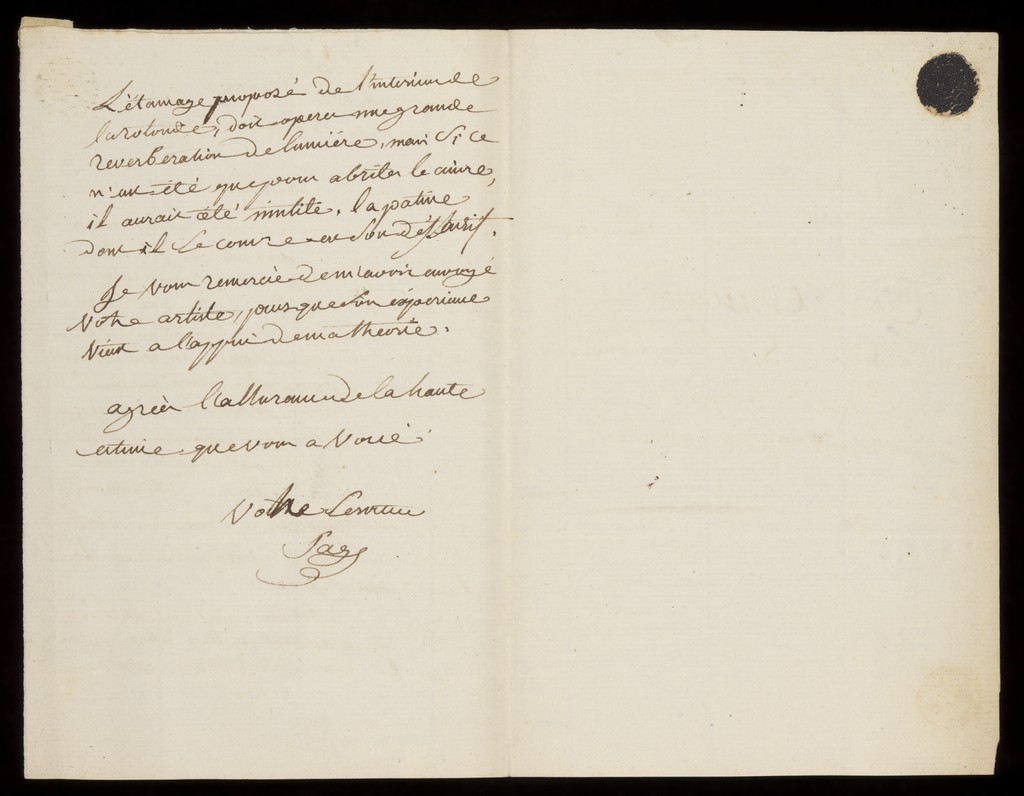 L'étamage proposé de l'interieur de
la rotonde, doit operer une grande
reverberation de lumière, mais si ce
n'eut été que pour abriter le cuivre,
il aurait été inutile, la patine
dont il se couvre en son
Je vous remercie de m'avoir envoyé
Votre artiste, puisque son experience
Vient a l'appui de ma theorie.
agréer l'assurance de la haute
estime que vous a Voué
Votre Serviteur
Sage